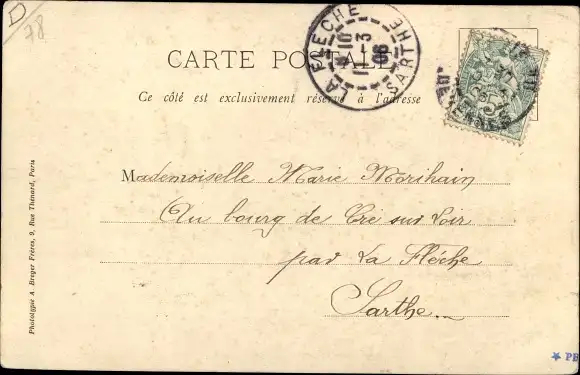 D
78
CARTE POSTALE
Ce côté est exclusivement réservé à l'adresse
LA FLÈCHE
SARTHE
10
3
06
Mademoiselle Marie Morihain
Au bourg de Cré sur Loir
par La Flèche
Sarthe
Phototypie A. Breger Frères, 9, Rue Thénard, Paris